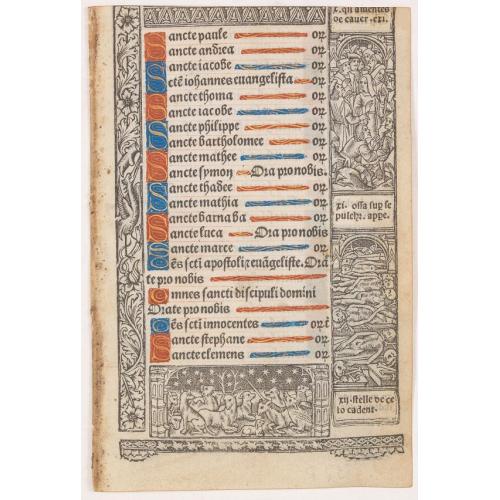 Sancte paule orʒ
Sancte andrea orʒ
Sancte iacobe orʒ
Sctē iohannes euangelista orʒ
Sancte thoma orʒ
Sancte iacobe orʒ
Sancte philippe orʒ
Sancte bartholomee orʒ
Sancte mathee orʒ
Sancte symon Ora pro nobis.
Sancte thadee orʒ
Sancte mathia orʒ
Sancte barnaba orʒ
Sancte luca Ora pro nobis
Sancte marce orʒ
Oēs scti apostoli et euāgeliste. Ora
te pro nobis
Omnes sancti discipuli domini
Orate pro nobis
Oēs scti innocentes
Sancte stephane orʒ
Sancte clemens orʒ
de cauer. exi.
xi. ossa sup se
pulchr. appe.
xij. stelle de ce
lo cadent.